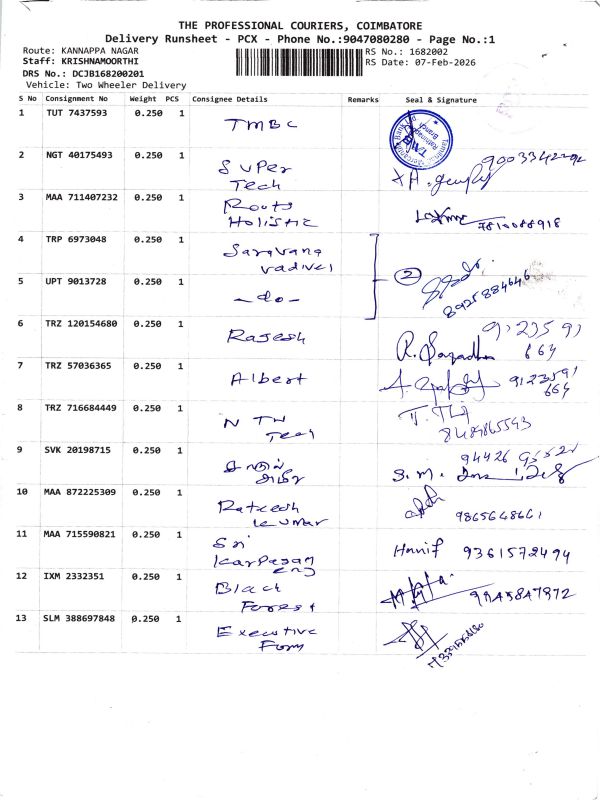 THE PROFESSIONAL COURIERS, COIMBATORE
Delivery Runsheet - PCX - Phone No.:9047080280 - Page No.:1
Route: KANNAPPA NAGAR
Staff: KRISHNAMOORTHI
DRS No.: DCJB168200201
Vehicle: Two Wheeler Delivery
RS No.: 1682002
RS Date: 07-Feb-2026
S No Consignment No Weight PCS Consignee Details Remarks Seal & Signature
1 TUT 7437593 0.250 1 TMBC
2 NGT 40175493 0.250 1 Super
Tech
3 MAA 711407232 0.250 1 Roots
Holistic 7810088918
4 TRP 6973048 0.250 1 Saravana
vadivel
2
5 UPT 9013728 0.250 1 -do- 8925884646
6 TRZ 120154680 0.250 1 Rajesh 9123591
664
7 TRZ 57036365 0.250 1 Albert 9123591
664
8 TRZ 716684449 0.250 1 N TW
Tech
9 SVK 20198715 0.250 1
10 MAA 872225309 0.250 1 Rateesh
kumar 9865648661
11 MAA 715590821 0.250 1 Sri
Karpagam
eng Hanif 9361572494
12 IXM 2332351 0.250 1 Black
Forest
13 SLM 388697848 0.250 1 Executive
Form